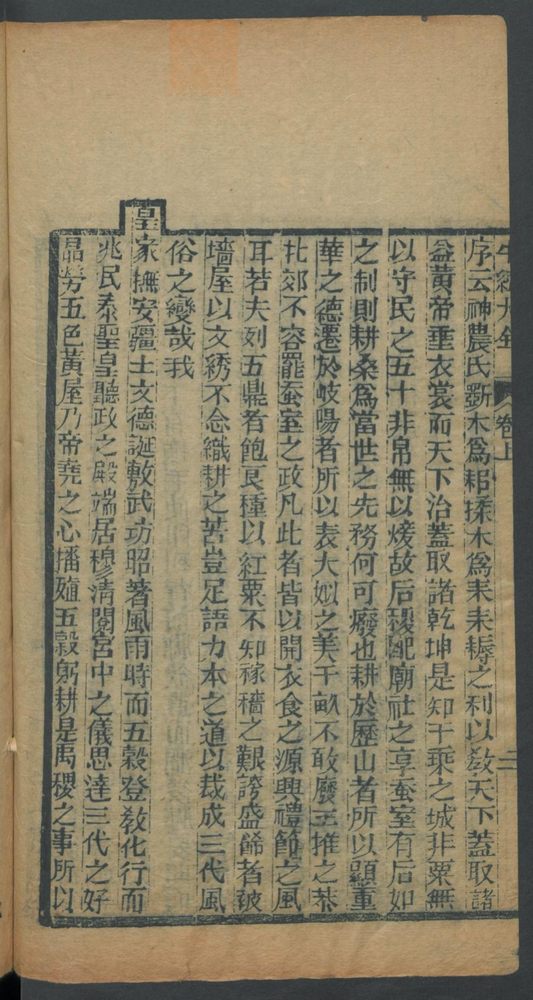 牛經大全 卷上 二
序云神農氏斲木爲耜揉木爲耒耒耨之利以敎天下蓋取諸
益黃帝垂衣裳而天下治蓋取諸乾坤是知千乘之城非粟無
以守民之五十非帛無以煖故后稷配廟社之享蚕室有后妃
之制則耕桑爲當世之先務何可癈也耕於歷山者所以顯重
華之德遷於岐陽者所以表大姒之美千畝不敢廢三推之恭
北郊不容罷蚕室之政凡此者皆以開衣食之源興禮節之風
耳若夫列五鼎者飽艮種以紅粟不知稼穡之艱誇盛餙者被
墻屋以文綉不念織耕之苦豈足語力本之道以裁成三代風
俗之變哉我
皇家撫安疆土文德誕敷武功昭著風雨時而五穀登敎化行而
兆民泰聖皇聽政之殿端居穆清閟宮中之儀思達三代之好
晶勞五色黃屋乃帝堯之心播殖五穀躬耕是禹稷之事所以